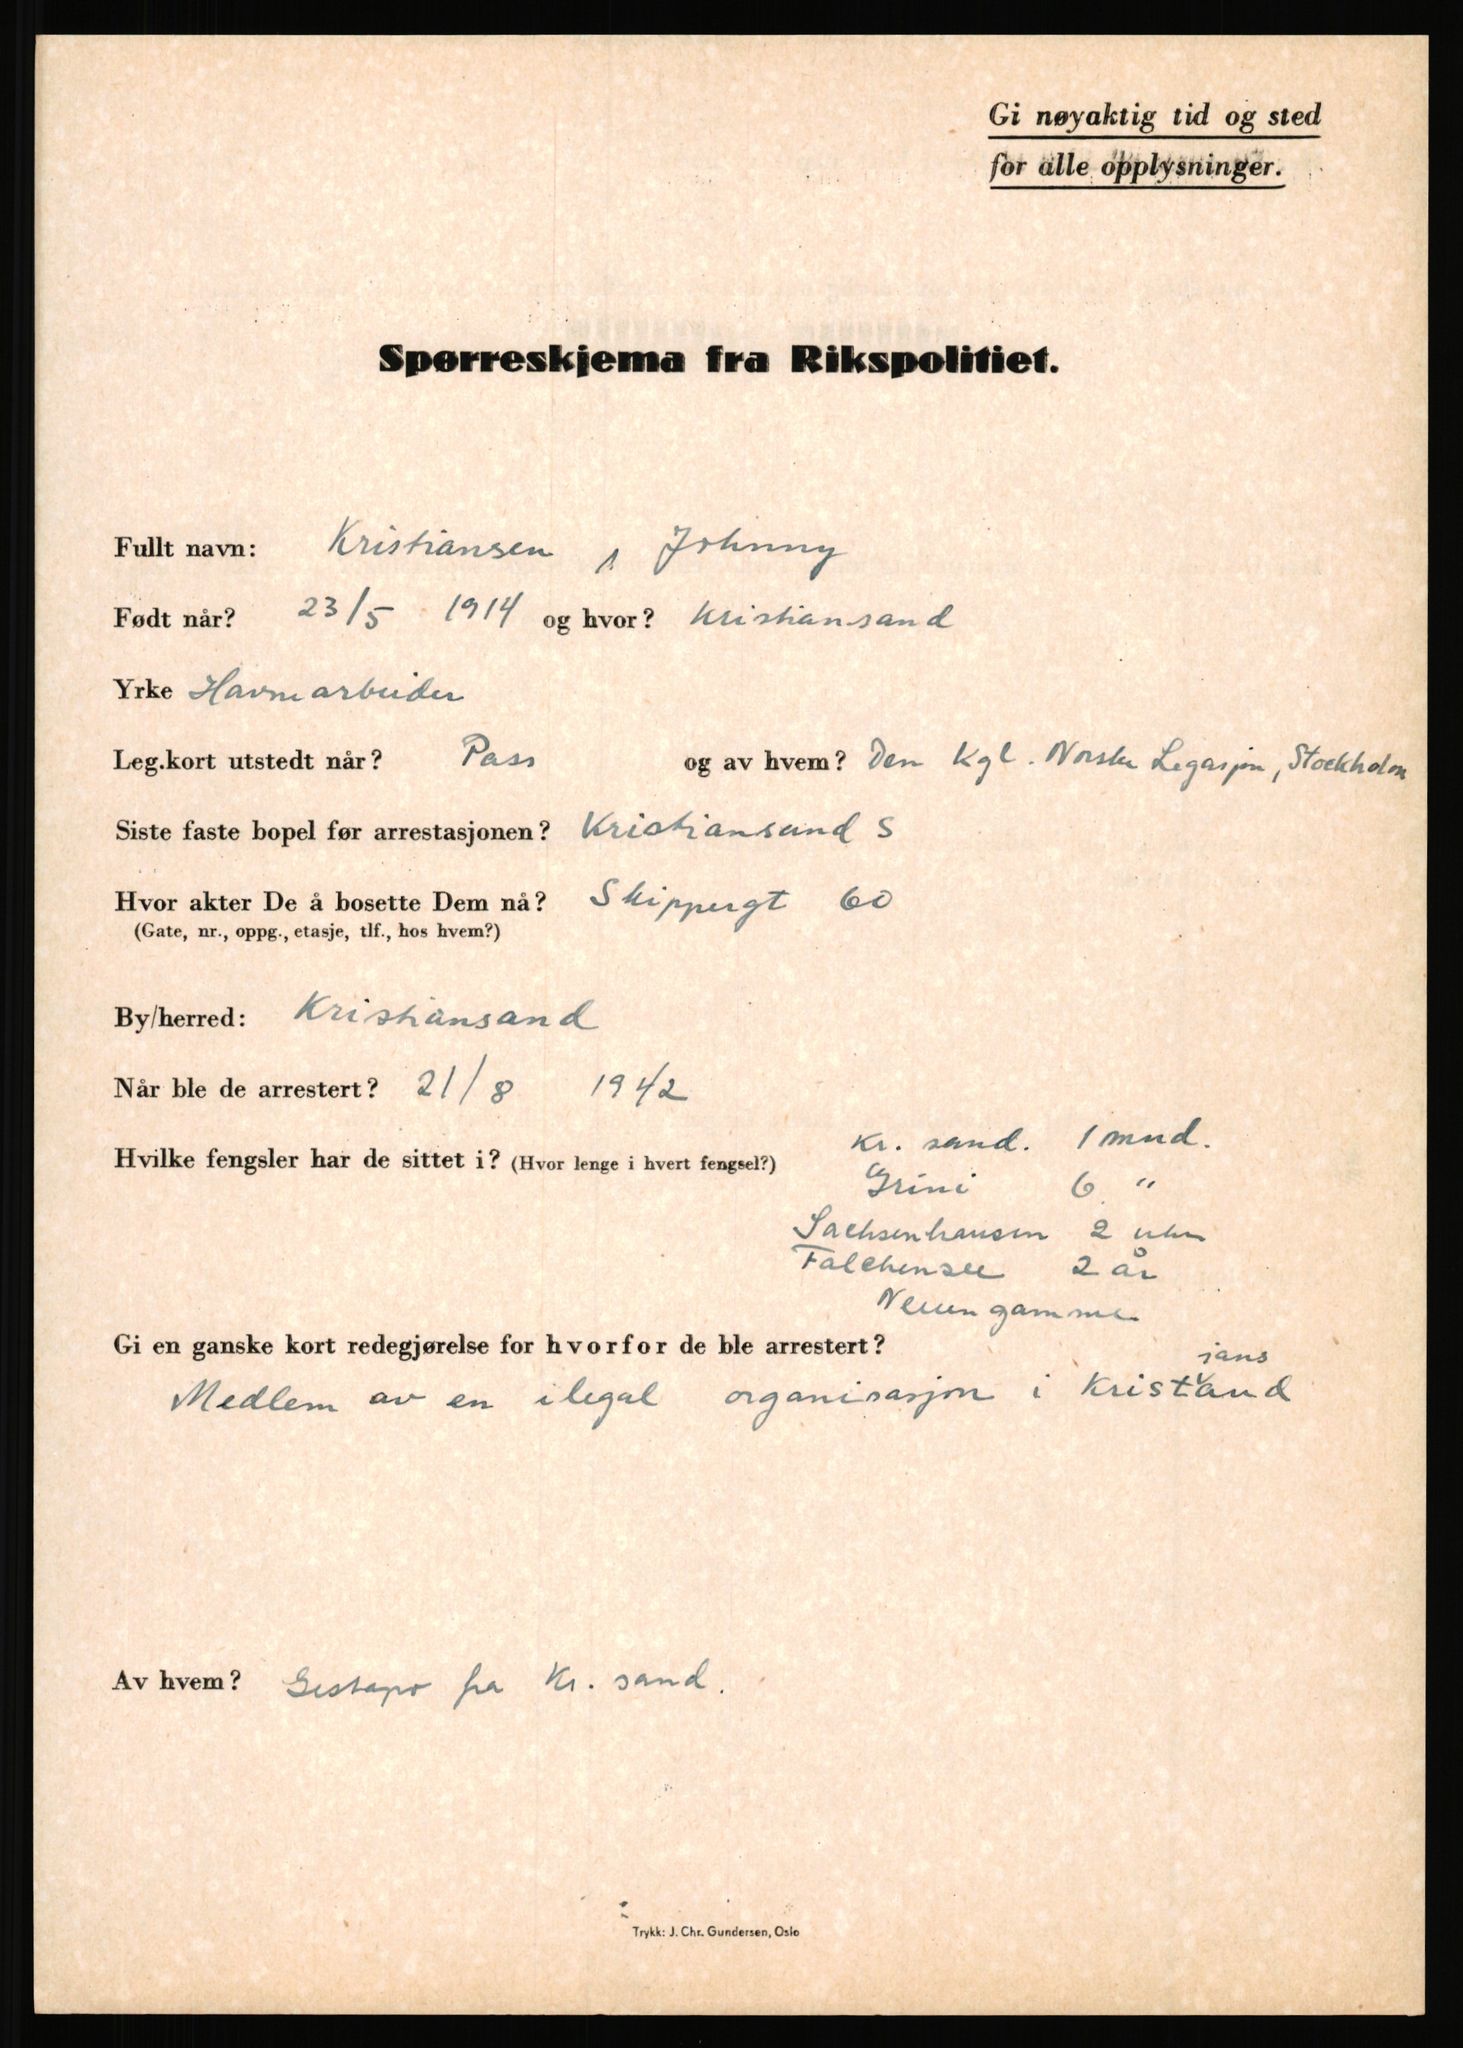 Gi nøyaktig tid og sted
for alle opplysninger.
Spørreskjema fra Rikspolitiet.
Fullt navn: Kristiansen, Johnny
Født når? 23/5 1914 og hvor? Kristiansand
Yrke Havnearbeider
Leg.kort utstedt når? Pass og av hvem? Den Kgl. Norske Legasjon, Stockholm
Siste faste bopel før arrestasjonen? Kristiansand S
Hvor akter De å bosette Dem nå? Skippergt 60
(Gate, nr., oppg., etasje, tlf., hos hvem?)
By/herred: Kristiansand
Når ble de arrestert? 21/8 1942
Hvilke fengsler har de sittet i? (Hvor lenge i hvert fengsel?) Kr. sand. 1 mnd.
Grini 6 "
Sachsenhausen 2 uker
Falchensee 2 år
Neuengamme
Gi en ganske kort redegjørelse for hvorfor de ble arrestert?
Medlem av en ilegal organisasjon i Kristiansand
Av hvem? Gestapo fra Kr. sand.
Trykk: J. Chr. Gundersen, Oslo